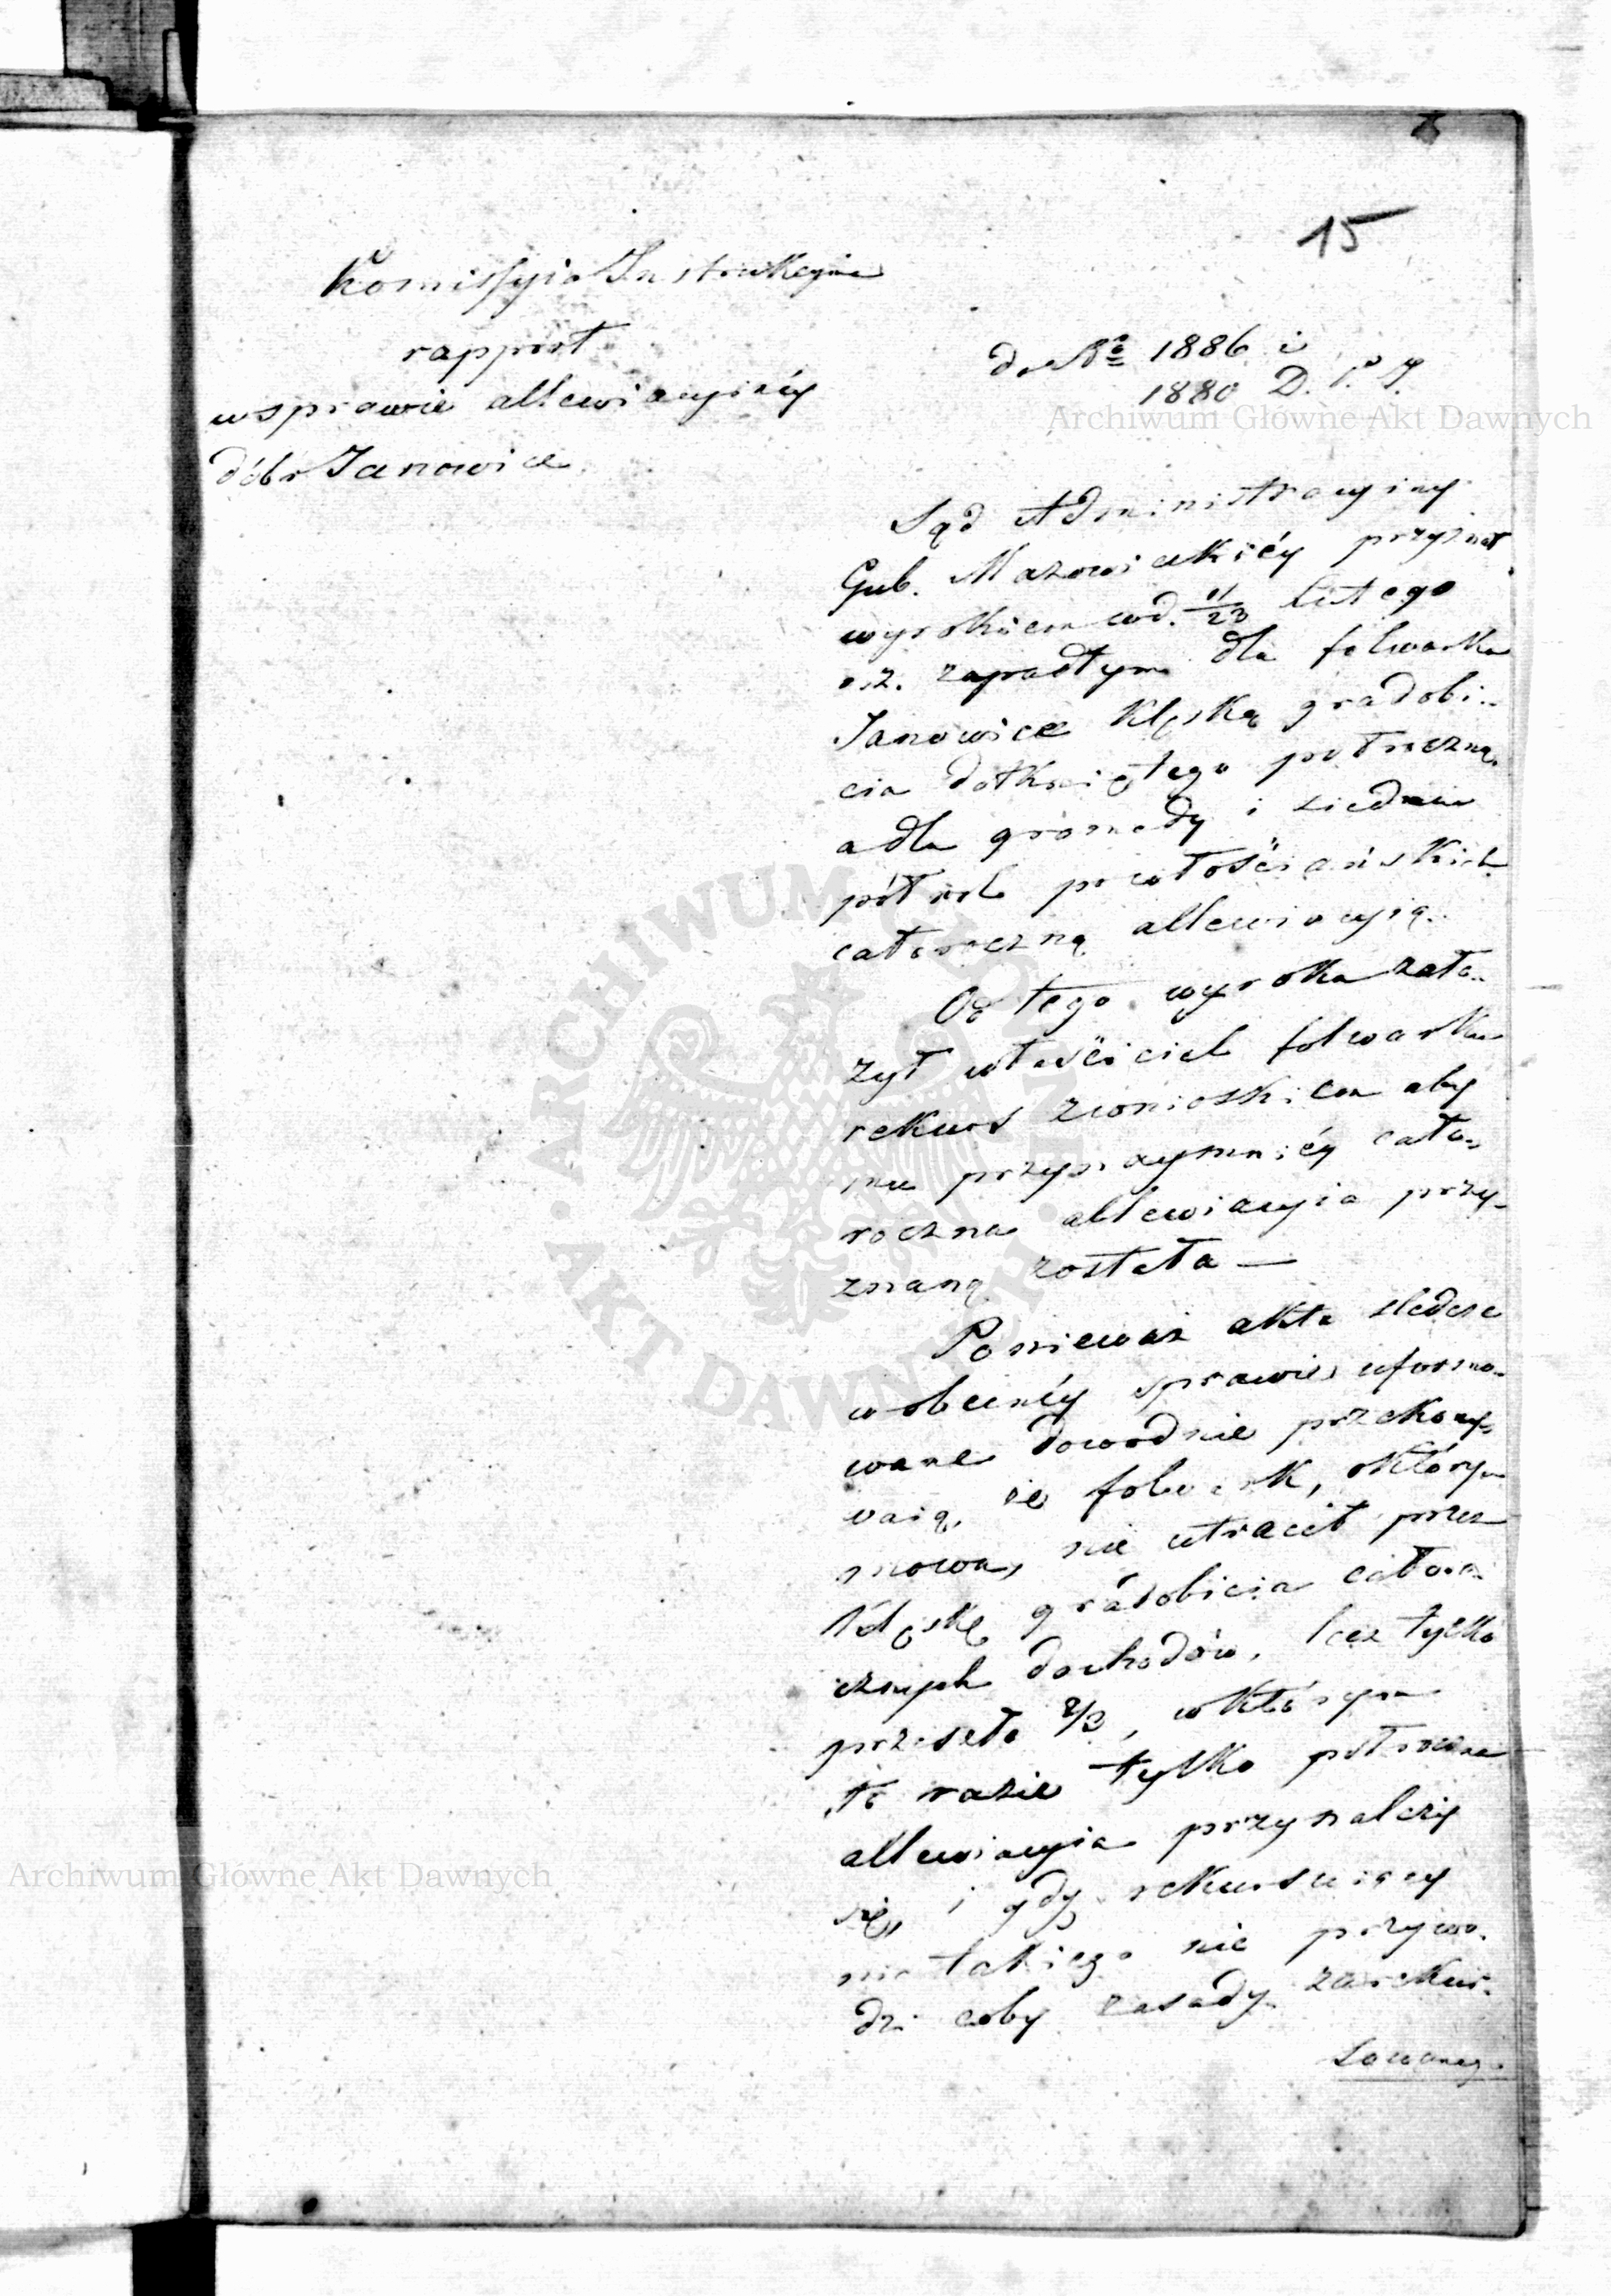 15
Kommissyia Instrukcyina
rapport
w sprawie allewiacyinéy
dóbr Janowice
do No 1886 i
1880 D.
Archiwum Główne Akt Dawnych
Sąd Administracyiny
Gub. Mazowieckiéy przyznał
wyrokiem wd. 11/23 Lutego
r.z. zapadłym dla folwarku
Janowice klęską gradobi-
cia dotkniętego półroczną
a dla gromady i siedmiu
pół ról po włościańskich
całoroczną allewiacyią.
Od tego wyroku zało-
żył właściciel folwarku
rekurs z wnioskiem aby
mu przynaymniéy cało-
roczna allewiacyia przy-
znaną została —
Ponieważ akta śledcze
w obecnéy sprawie uformo-
wane dowodnie przekony-
waią, że folwark, o którym
mowa, nie utracił przez
klęskę gradobicia całoro-
cznych dochodów, lecz tylko
przeszło 2/3, w którym
to razie tylko półroczna
allewiacyia przynależy
się, i gdy rekursuiący
nic takiego nie przywo-
dzi coby zasady zarekur-
sowaneg.
ARCHIWUM GŁÓWNE
AKT DAWNYCH
Archiwum Główne Akt Dawnych